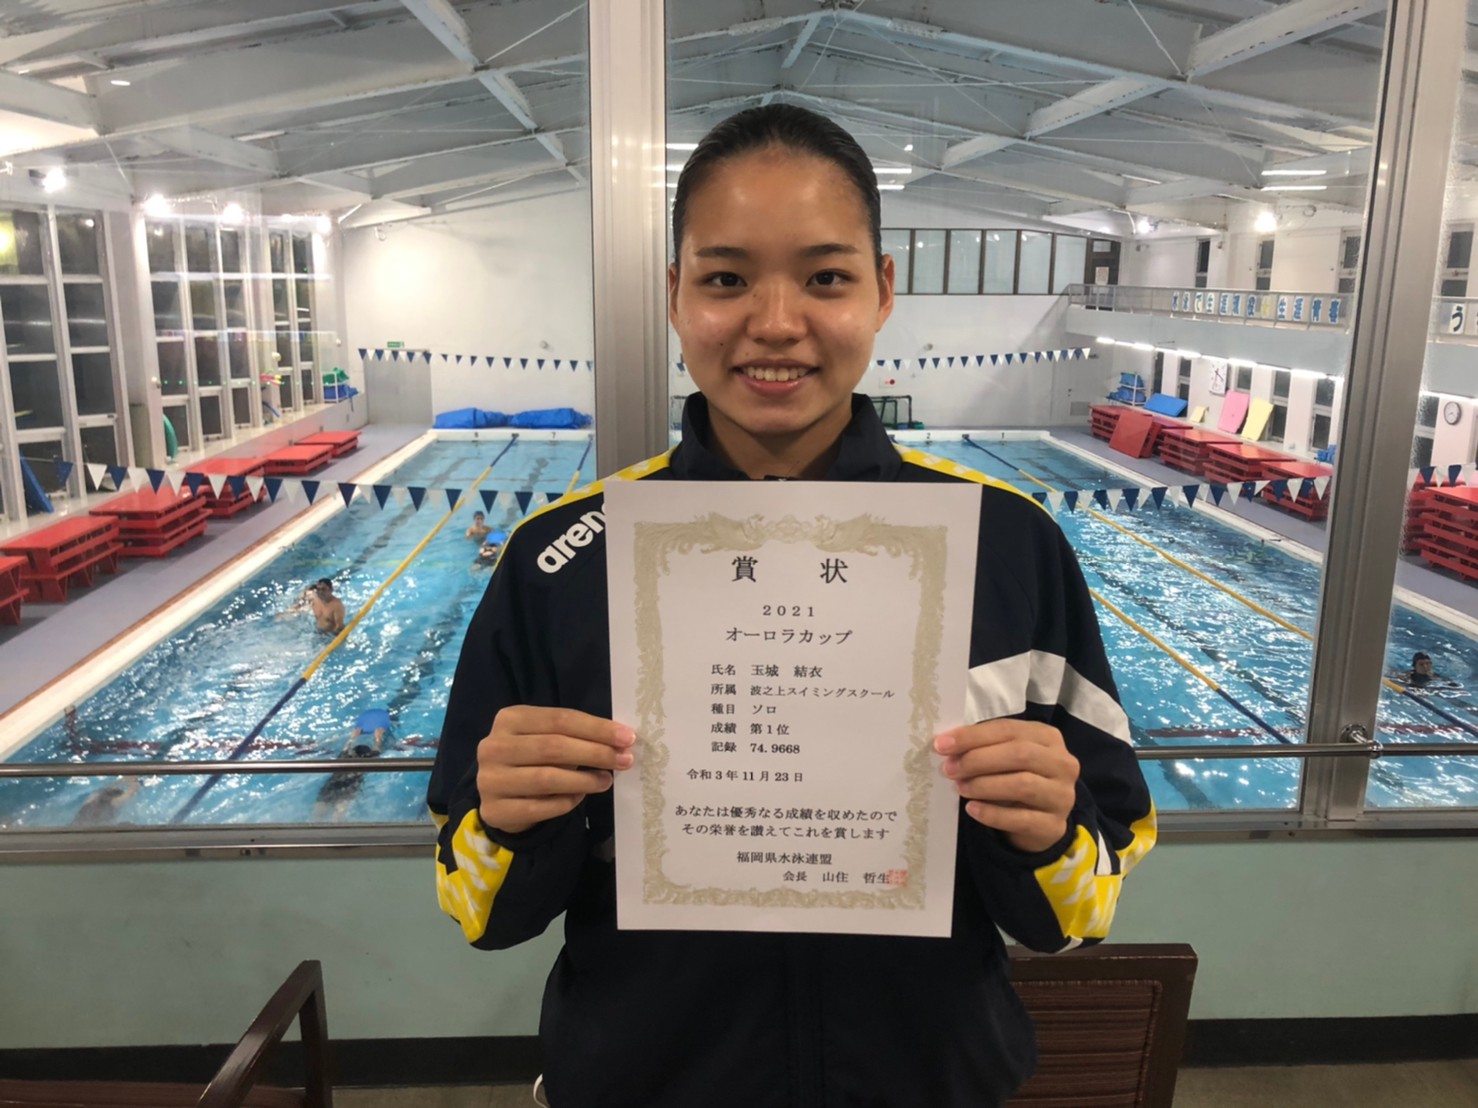 arena
賞 状
2021
オーロラカップ
氏名 玉城 結衣
所属 波之上スイミングスクール
種目 ソロ
成績 第1位
記録 74.9668
令和3年11月23日
あなたは優秀なる成績を収めたので
その栄誉を讃えてこれを賞します
福岡県水泳連盟
会長 山住 哲生
6 7
2 1
生涯青春
う